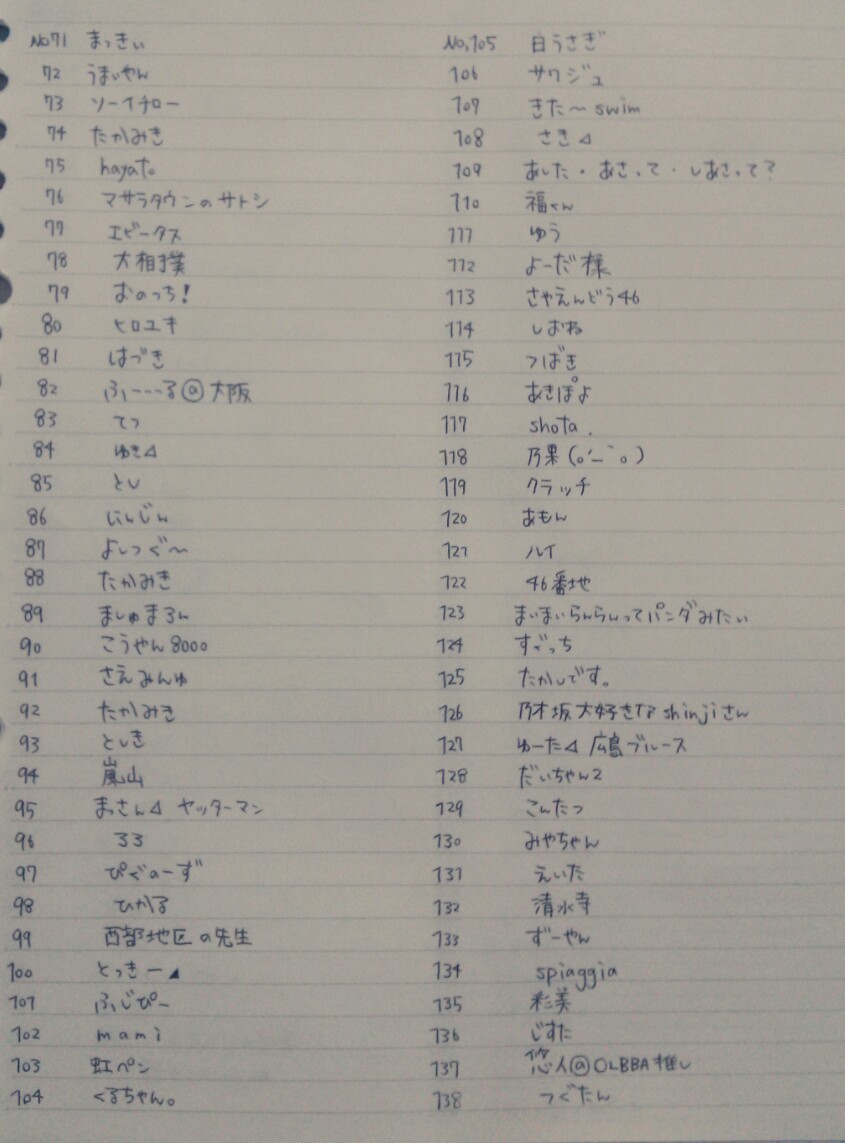 No71 まっきぃ
72 うまいやん
73 ソーイチロー
74 たかみき
75 hayato。
76 マサラタウンのサトシ
77 エビータス
78 大相撲
79 おのっち!
80 ヒロユキ
81 はづき
82 ふーーーる@大阪
83 てつ
84 ゆき⊿
85 とし
86 にんじん
87 よしつぐ〜
88 たかみき
89 ましゅまろん
90 こうやん8000
91 さえみんゆ
92 たかみき
93 としき
94 嵐山
95 まっさん⊿ ヤッターマン
96 ろろ
97 ぴぐのーず
98 ひかる
99 西部地区の先生
100 とっきー◢
101 ふじぴー
102 mami
103 虹ペン
104 くるちゃん。
No,105 白うさぎ
106 サワジュ
107 きた〜swim
108 さき⊿
109 あした・あさって・しあさって?
110 福くん
111 ゆう
112 よーだ様
113 さやえんどう46
114 しおね
115 つばき
116 あきぽよ
117 shota.
118 乃果(。'_`。)
119 クラッチ
120 あもん
121 ルイ
122 46番地
123 まいまいらんらんってパンダみたい
124 すごっち
125 たかしです。
126 乃木坂大好きなshinjiさん
127 ゆーた⊿ 広島ブルース
128 だいちゃん2
129 こんたつ
130 みやちゃん
131 えいた
132 清水寺
133 ずーやん
134 spiaggia
135 彩美
136 じすた
137 悠人@OLBBA推し
138 つぐたん